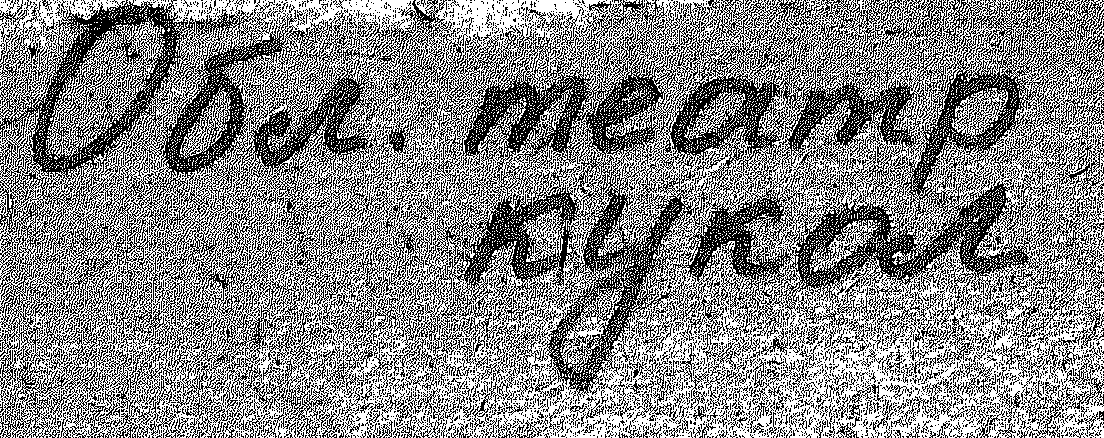 Обл. театр
кукол